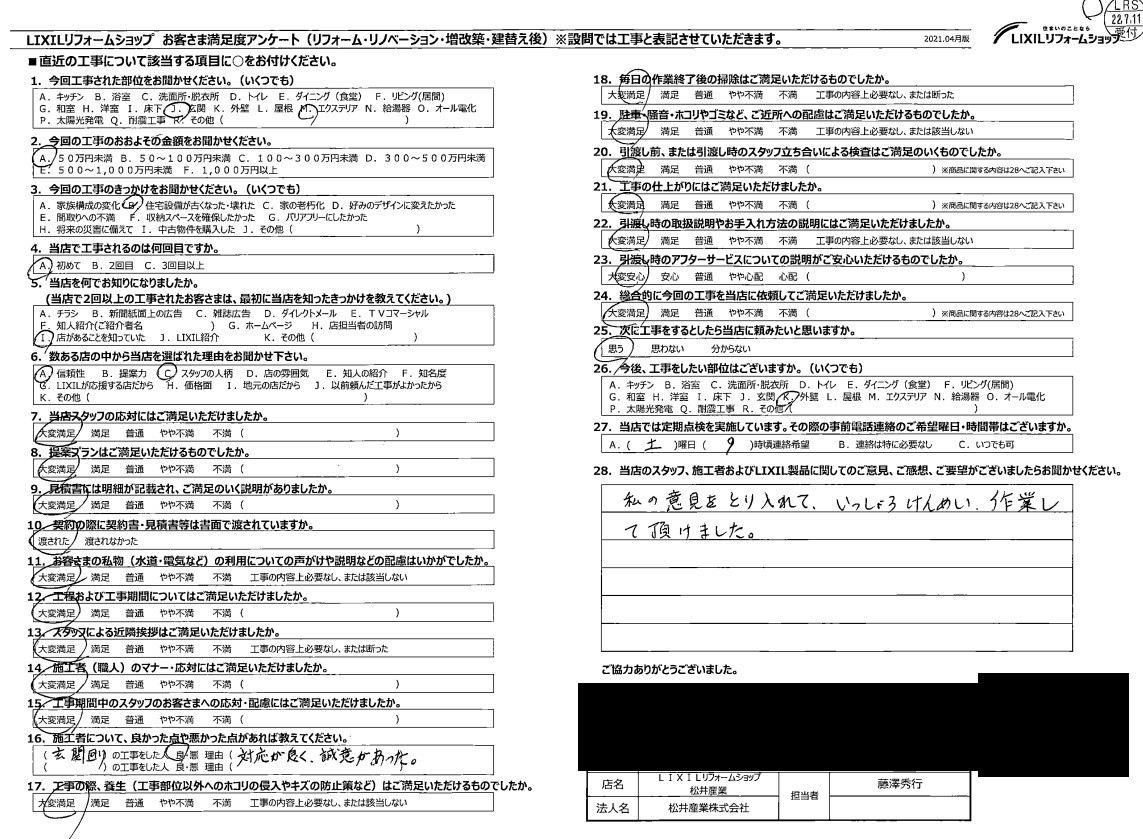 LRS
22.7.11
受付
LIXILリフォームショップ お客さま満足度アンケート（リフォーム・リノベーション・増改築・建替え後）※設問では工事と表記させていただきます。
2021.04月版
住まいのことなら
LIXILリフォームショップ
■直近の工事について該当する項目に○をお付けください。
1. 今回工事された部位をお聞かせください。（いくつでも）
A. キッチン B. 浴室 C. 洗面所・脱衣所 D. トイレ E. ダイニング（食堂） F. リビング(居間)
G. 和室 H. 洋室 I. 床下 J. 玄関 K. 外壁 L. 屋根 M. エクステリア N. 給湯器 O. オール電化
P. 太陽光発電 Q. 耐震工事 R. その他（ ）
2. 今回の工事のおおよその金額をお聞かせください。
A. 50万円未満 B. 50～100万円未満 C. 100～300万円未満 D. 300～500万円未満
E. 500～1,000万円未満 F. 1,000万円以上
3. 今回の工事のきっかけをお聞かせください。（いくつでも）
A. 家族構成の変化 B. 住宅設備が古くなった・壊れた C. 家の老朽化 D. 好みのデザインに変えたかった
E. 間取りへの不満 F. 収納スペースを確保したかった G. バリアフリーにしたかった
H. 将来の災害に備えて I. 中古物件を購入した J. その他（ ）
4. 当店で工事されるのは何回目ですか。
A. 初めて B. 2回目 C. 3回目以上
5. 当店を何でお知りになりましたか。
(当店で2回以上の工事されたお客さまは、最初に当店を知ったきっかけを教えてください。)
A. チラシ B. 新聞紙面上の広告 C. 雑誌広告 D. ダイレクトメール E. TVコマーシャル
F. 知人紹介(ご紹介者名 ) G. ホームページ H. 店担当者の訪問
I. 店があることを知っていた J. LIXIL紹介 K. その他（ ）
6. 数ある店の中から当店を選ばれた理由をお聞かせ下さい。
A. 信頼性 B. 提案力 C. スタッフの人柄 D. 店の雰囲気 E. 知人の紹介 F. 知名度
G. LIXILが応援する店だから H. 価格面 I. 地元の店だから J. 以前頼んだ工事がよかったから
K. その他（ ）
7. 当店スタッフの応対にはご満足いただけましたか。
大変満足 満足 普通 やや不満 不満（ ）
8. 提案プランはご満足いただけるものでしたか。
大変満足 満足 普通 やや不満 不満（ ）
9. 見積書には明細が記載され、ご満足のいく説明がありましたか。
大変満足 満足 普通 やや不満 不満（ ）
10. 契約の際に契約書・見積書等は書面で渡されていますか。
渡された 渡されなかった
11. お客さまの私物（水道・電気など）の利用についての声がけや説明などの配慮はいかがでしたか。
大変満足 満足 普通 やや不満 不満 工事の内容上必要なし、または該当しない
12. 工程および工事期間についてはご満足いただけましたか。
大変満足 満足 普通 やや不満 不満（ ）
13. スタッフによる近隣挨拶はご満足いただけましたか。
大変満足 満足 普通 やや不満 不満 工事の内容上必要なし、または断った
14. 施工者（職人）のマナー・応対にはご満足いただけましたか。
大変満足 満足 普通 やや不満 不満（ ）
15. 工事期間中のスタッフのお客さまへの応対・配慮にはご満足いただけましたか。
大変満足 満足 普通 やや不満 不満（ ）
16. 施工者について、良かった点や悪かった点があれば教えてください。
（玄関回り の工事をした人 良・悪 理由（対応が良く、誠意があった。
（ ）の工事をした人 良・悪 理由（ ）
17. 工事の際、養生（工事部位以外へのホコリの侵入やキズの防止策など）はご満足いただけるものでしたか。
大変満足 満足 普通 やや不満 不満 工事の内容上必要なし、または該当しない
18. 毎日の作業終了後の掃除はご満足いただけるものでしたか。
大変満足 満足 普通 やや不満 不満 工事の内容上必要なし、または断った
19. 駐車・騒音・ホコリやゴミなど、ご近所への配慮はご満足いただけるものでしたか。
大変満足 満足 普通 やや不満 不満 工事の内容上必要なし、または該当しない
20. 引渡し前、または引渡し時のスタッフ立ち合いによる検査はご満足のいくものでしたか。
大変満足 満足 普通 やや不満 不満（ ）※商品に関する内容は28へご記入下さい
21. 工事の仕上がりにはご満足いただけましたか。
大変満足 満足 普通 やや不満 不満（ ）※商品に関する内容は28へご記入下さい
22. 引渡し時の取扱説明やお手入れ方法の説明にはご満足いただけましたか。
大変満足 満足 普通 やや不満 不満 工事の内容上必要なし、または該当しない
23. 引渡し時のアフターサービスについての説明がご安心いただけるものでしたか。
大変安心 安心 普通 やや心配 心配（ ）
24. 総合的に今回の工事を当店に依頼してご満足いただけましたか。
大変満足 満足 普通 やや不満 不満（ ）※商品に関する内容は28へご記入下さい
25. 次に工事をするとしたら当店に頼みたいと思いますか。
思う 思わない 分からない
26. 今後、工事をしたい部位はございますか。（いくつでも）
A. キッチン B. 浴室 C. 洗面所・脱衣所 D. トイレ E. ダイニング（食堂） F. リビング(居間)
G. 和室 H. 洋室 I. 床下 J. 玄関 K. 外壁 L. 屋根 M. エクステリア N. 給湯器 O. オール電化
P. 太陽光発電 Q. 耐震工事 R. その他（ ）
27. 当店では定期点検を実施しています。その際の事前電話連絡のご希望曜日・時間帯はございますか。
A.（ 土 ）曜日（ 9 ）時頃連絡希望 B. 連絡は特に必要なし C. いつでも可
28. 当店のスタッフ、施工者およびLIXIL製品に関してのご意見、ご感想、ご要望がございましたらお聞かせください。
私の意見をとり入れて、いっしょうけんめい、作業し
て頂けました。
ご協力ありがとうございました。
店名 LIXILリフォームショップ 松井産業 担当者 藤澤秀行
法人名 松井産業株式会社